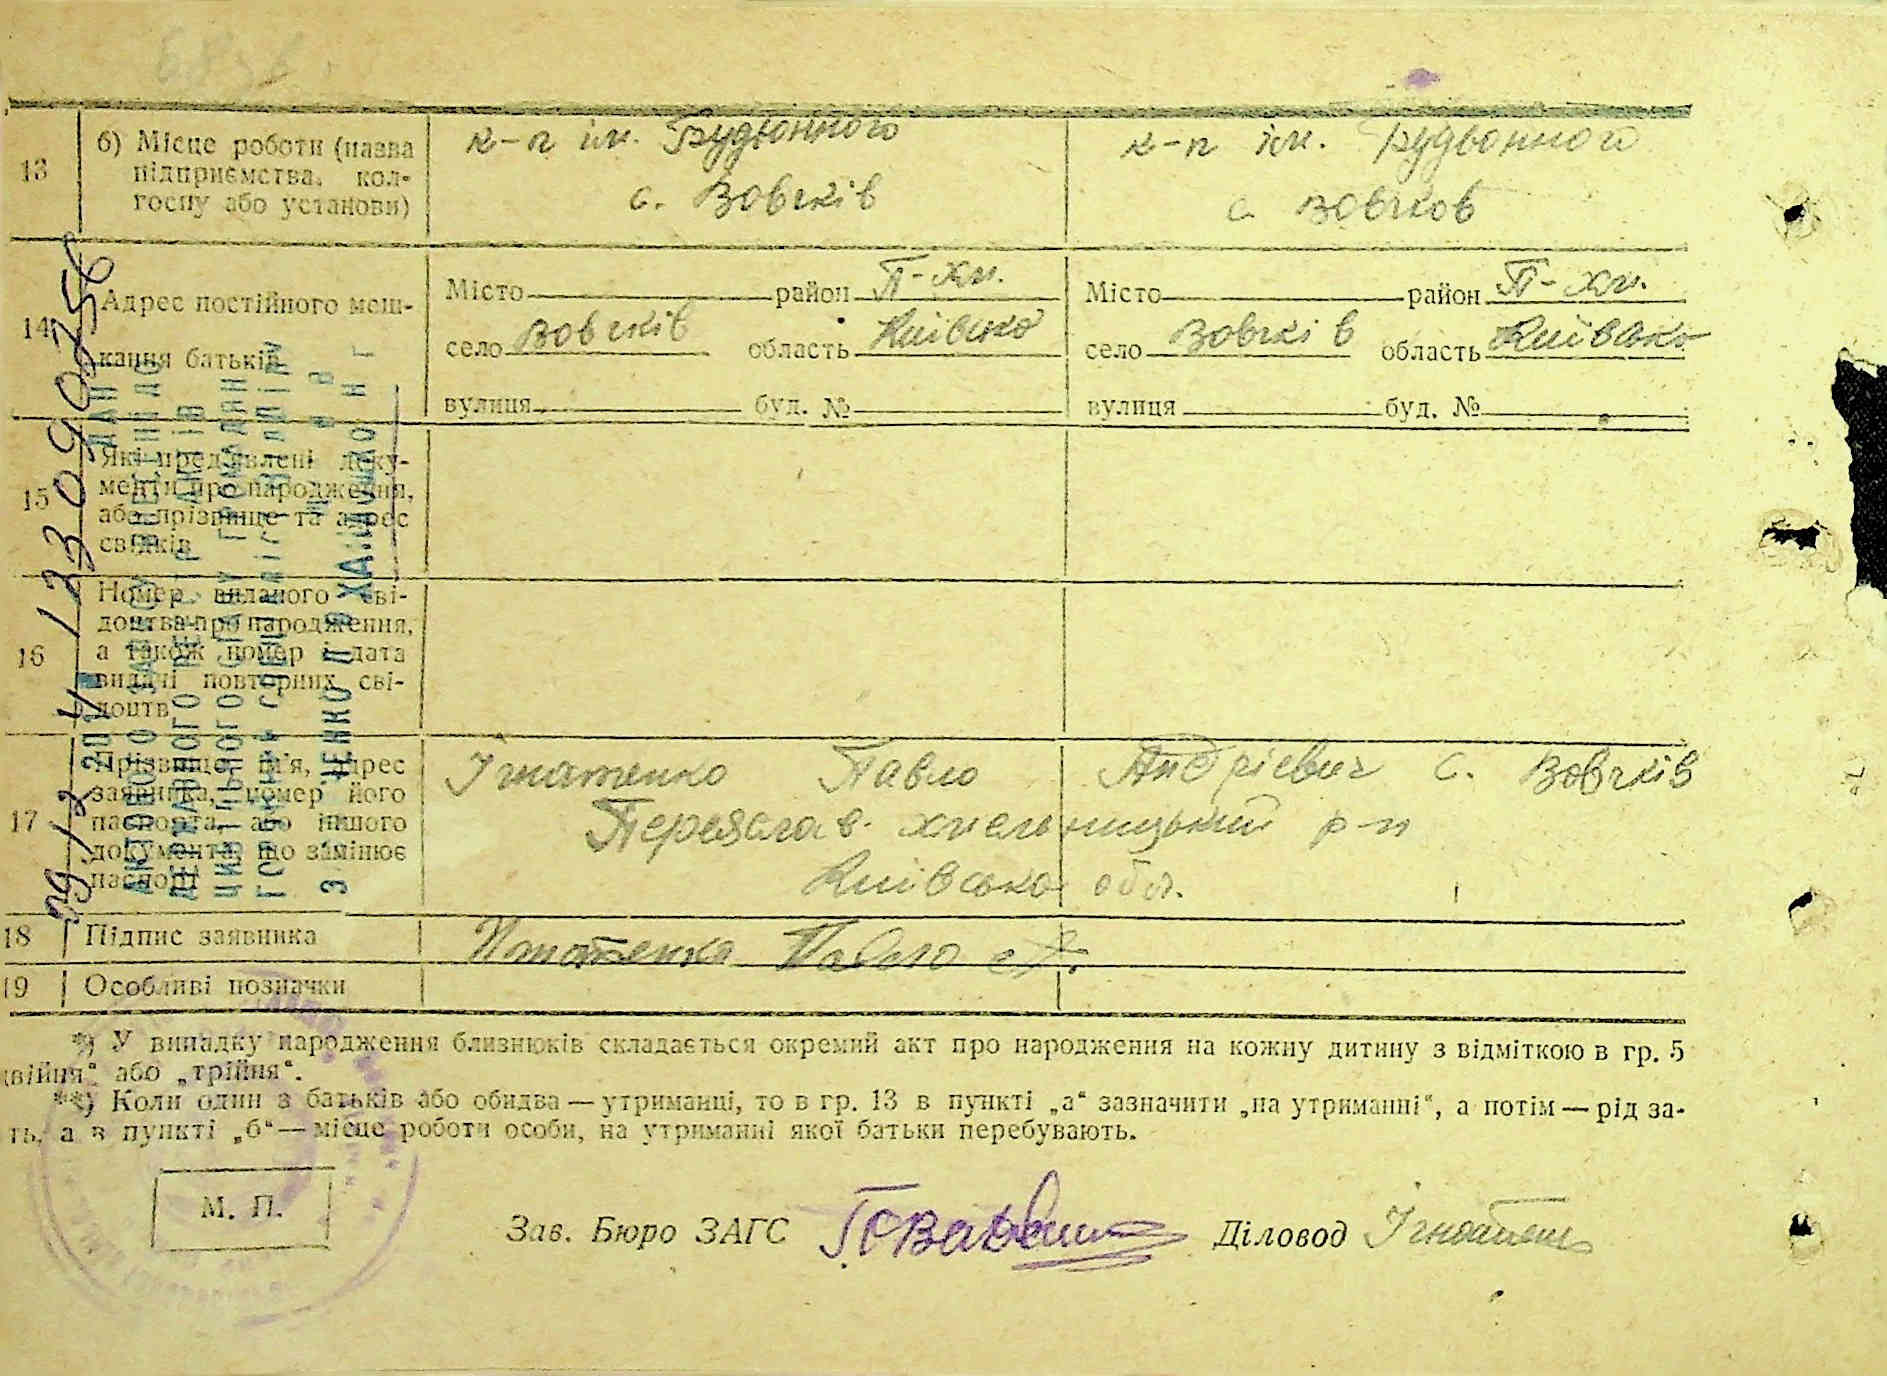 13
б) Місце роботи (назва
підприємства, кол-
госпу або установи)
к-п ім. Будьонного
с. Вовчків
к-п ім. Будьонного
с. Вовчков
14
Адрес постійного меш-
кання батьків
Місто район П-Хм.
село Вовчків область Київсько
вулиця буд. №
Місто район П-Хм.
село Вовчків область Київсько
вулиця буд. №
15
Які пред'явлені доку-
менти про народження,
або прізвище та адрес
свідків
16
Номер виданого сві-
доцтва про народження,
а також номер і дата
видачі повторних сві-
доцтв
17
Прізвище, ім'я, адрес
заявника, номер його
паспорта, або іншого
документа, що замінює
паспорт
Ігнатенко Павло Андрієвич с. Вовчків
Переяслав. Хмельницький р-н
Київсько обл.
18
Підпис заявника
Игнатенко Павло А.
19
Особливі позначки
*) У випадку народження близнюків складається окремий акт про народження на кожну дитину з відміткою в гр. 5
двійня“ або „трійня“.
**) Коли один з батьків або обидва — утриманці, то в гр. 13 в пункті „а“ зазначити „на утриманні“, а потім — рід за-
ть, а в пункті „б“ — місце роботи особи, на утриманні якої батьки перебувають.
М. П.
Зав. Бюро ЗАГС
Діловод Ігнатенко